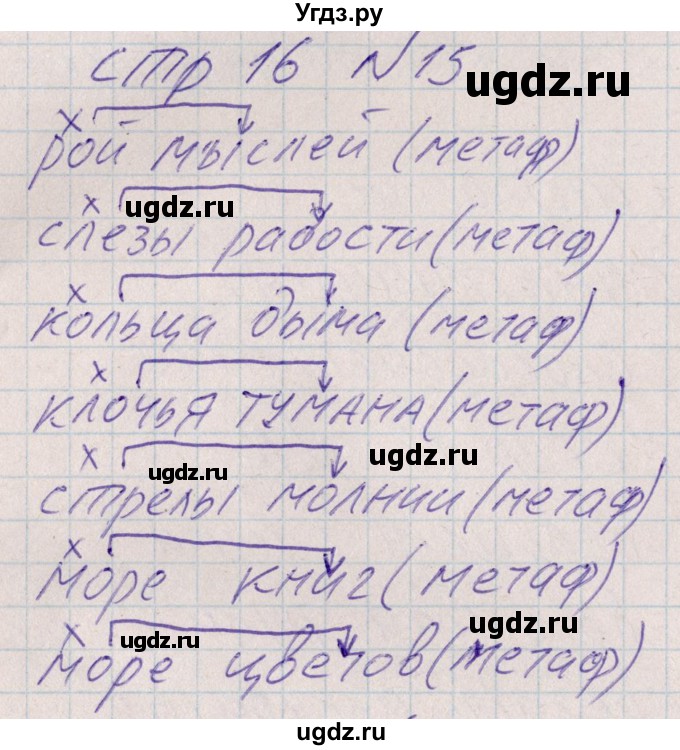 Угдз.ру
стр 16 №15
ugdz.ru
х
рой мыслей (метаф)
х ugdz.ru
слёзы радости (метаф)
х
кольца дыма (метаф)
х
клочья тумана (метаф)
х ugdz.ru ugdz.ru
стрелы молнии (метаф)
х
море книг (метаф)
х ugdz.ru ugdz.ru
море цветов (метаф)
ugdz.ru